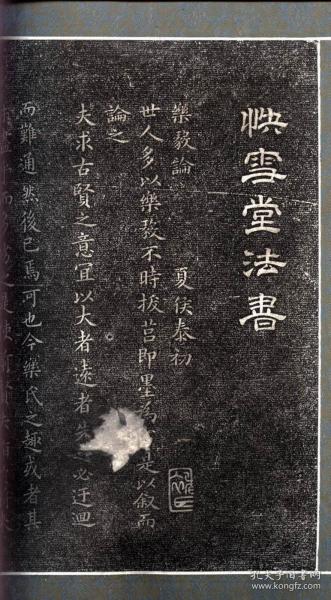 快雪堂法書
樂毅論 夏侯泰初
世人多以樂毅不時拔莒即墨為 是以叙而
論之
夫求古賢之意宜以大者遠者先 必迂迴
而難通然後已焉可也今樂氏之趣或者其
孔夫子旧书网